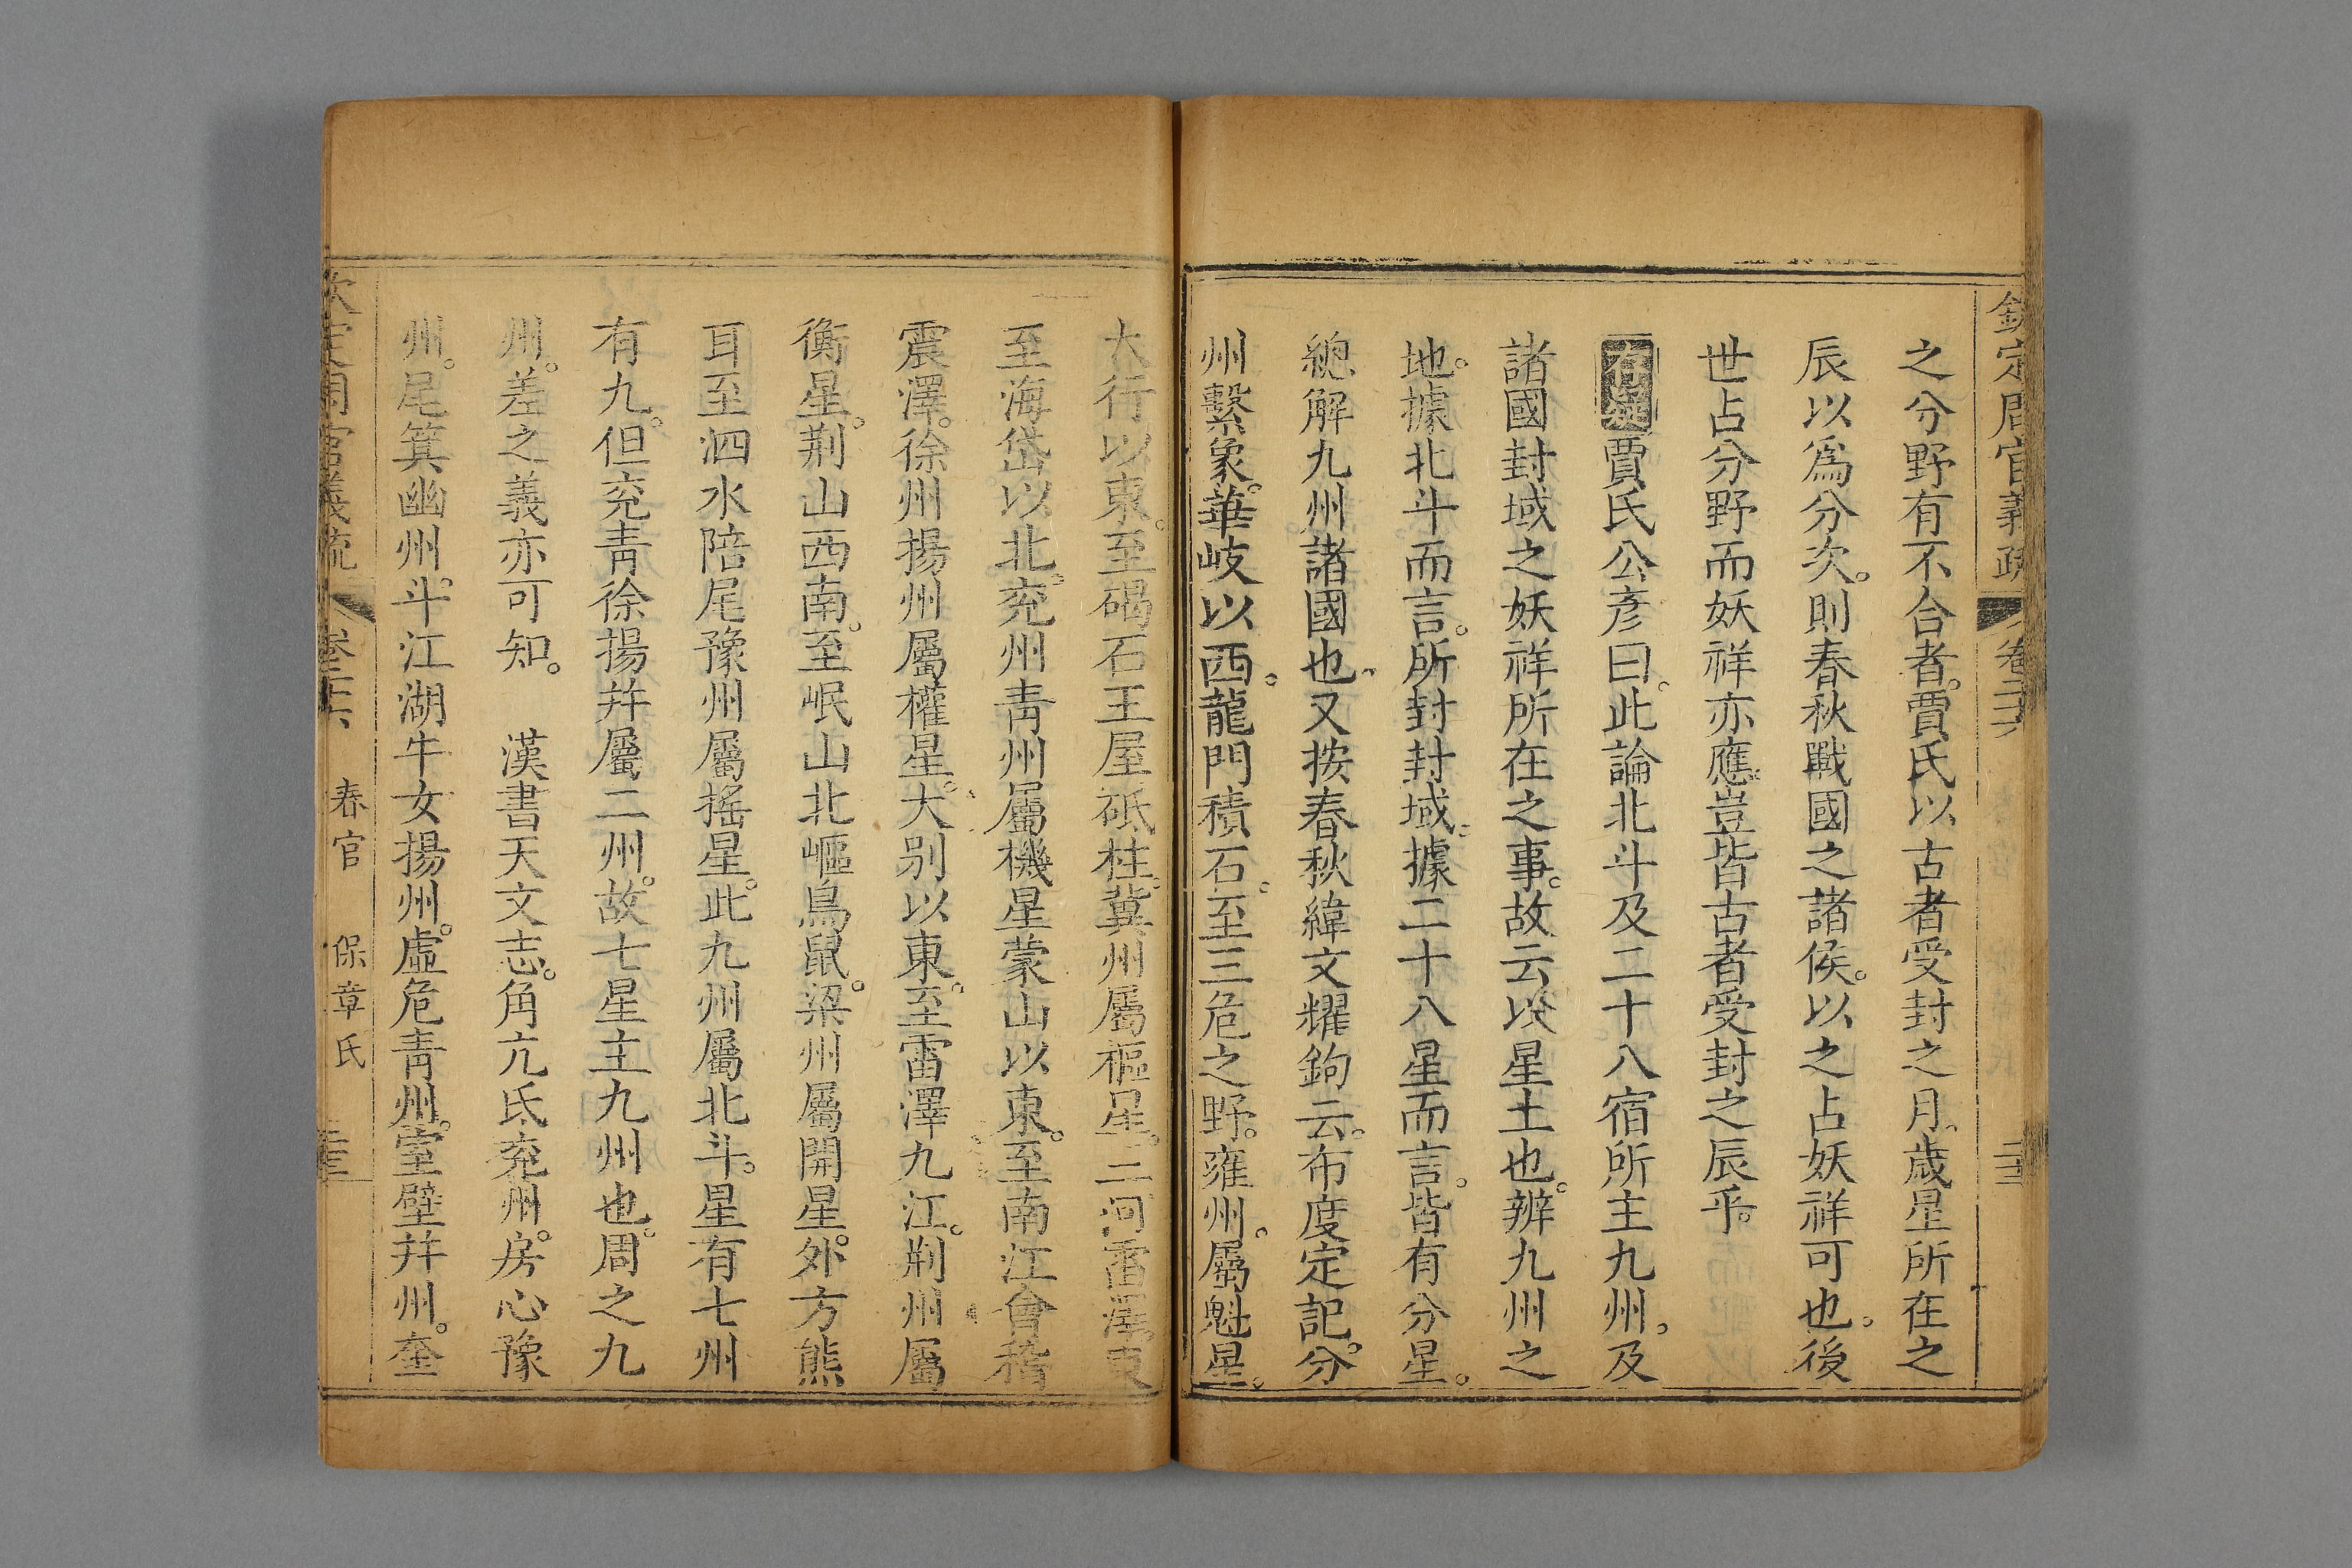 欽定周官義疏 卷二十六
之分野有不合者賈氏以古者受封之月歲星所在之
辰以爲分次則春秋戰國之諸侯以之占妖祥可也後
世占分野而妖祥亦應豈皆古者受封之辰乎
存疑賈氏公彥曰此論北斗及二十八宿所主九州及
諸國封域之妖祥所在之事故云以星土也辨九州之
地據北斗而言所封封域據二十八星而言皆有分星
總解九州諸國也又按春秋緯文耀鉤云布度定記分
州繫象華岐以西龍門積石至三危之野雍州屬魁星
大行以東至碣石王屋砥柱冀州屬樞星三河雷澤東
至海岱以北兗州青州屬機星蒙山以東至南江會稽
震澤徐州揚州屬權星大别以東至雷澤九江荆州屬
衡星荆山西南至岷山北嶇鳥鼠梁州屬開星外方熊
耳至泗水陪尾豫州屬搖星此九州屬北斗星有七州
有九但兗青徐揚并屬二州故七星主九州也周之九
州差之義亦可知 漢書天文志角亢氐兗州房心豫
州尾箕幽州斗江湖牛女揚州虛危青州室壁并州奎
欽定周官義疏 卷二十六 春官 保章氏